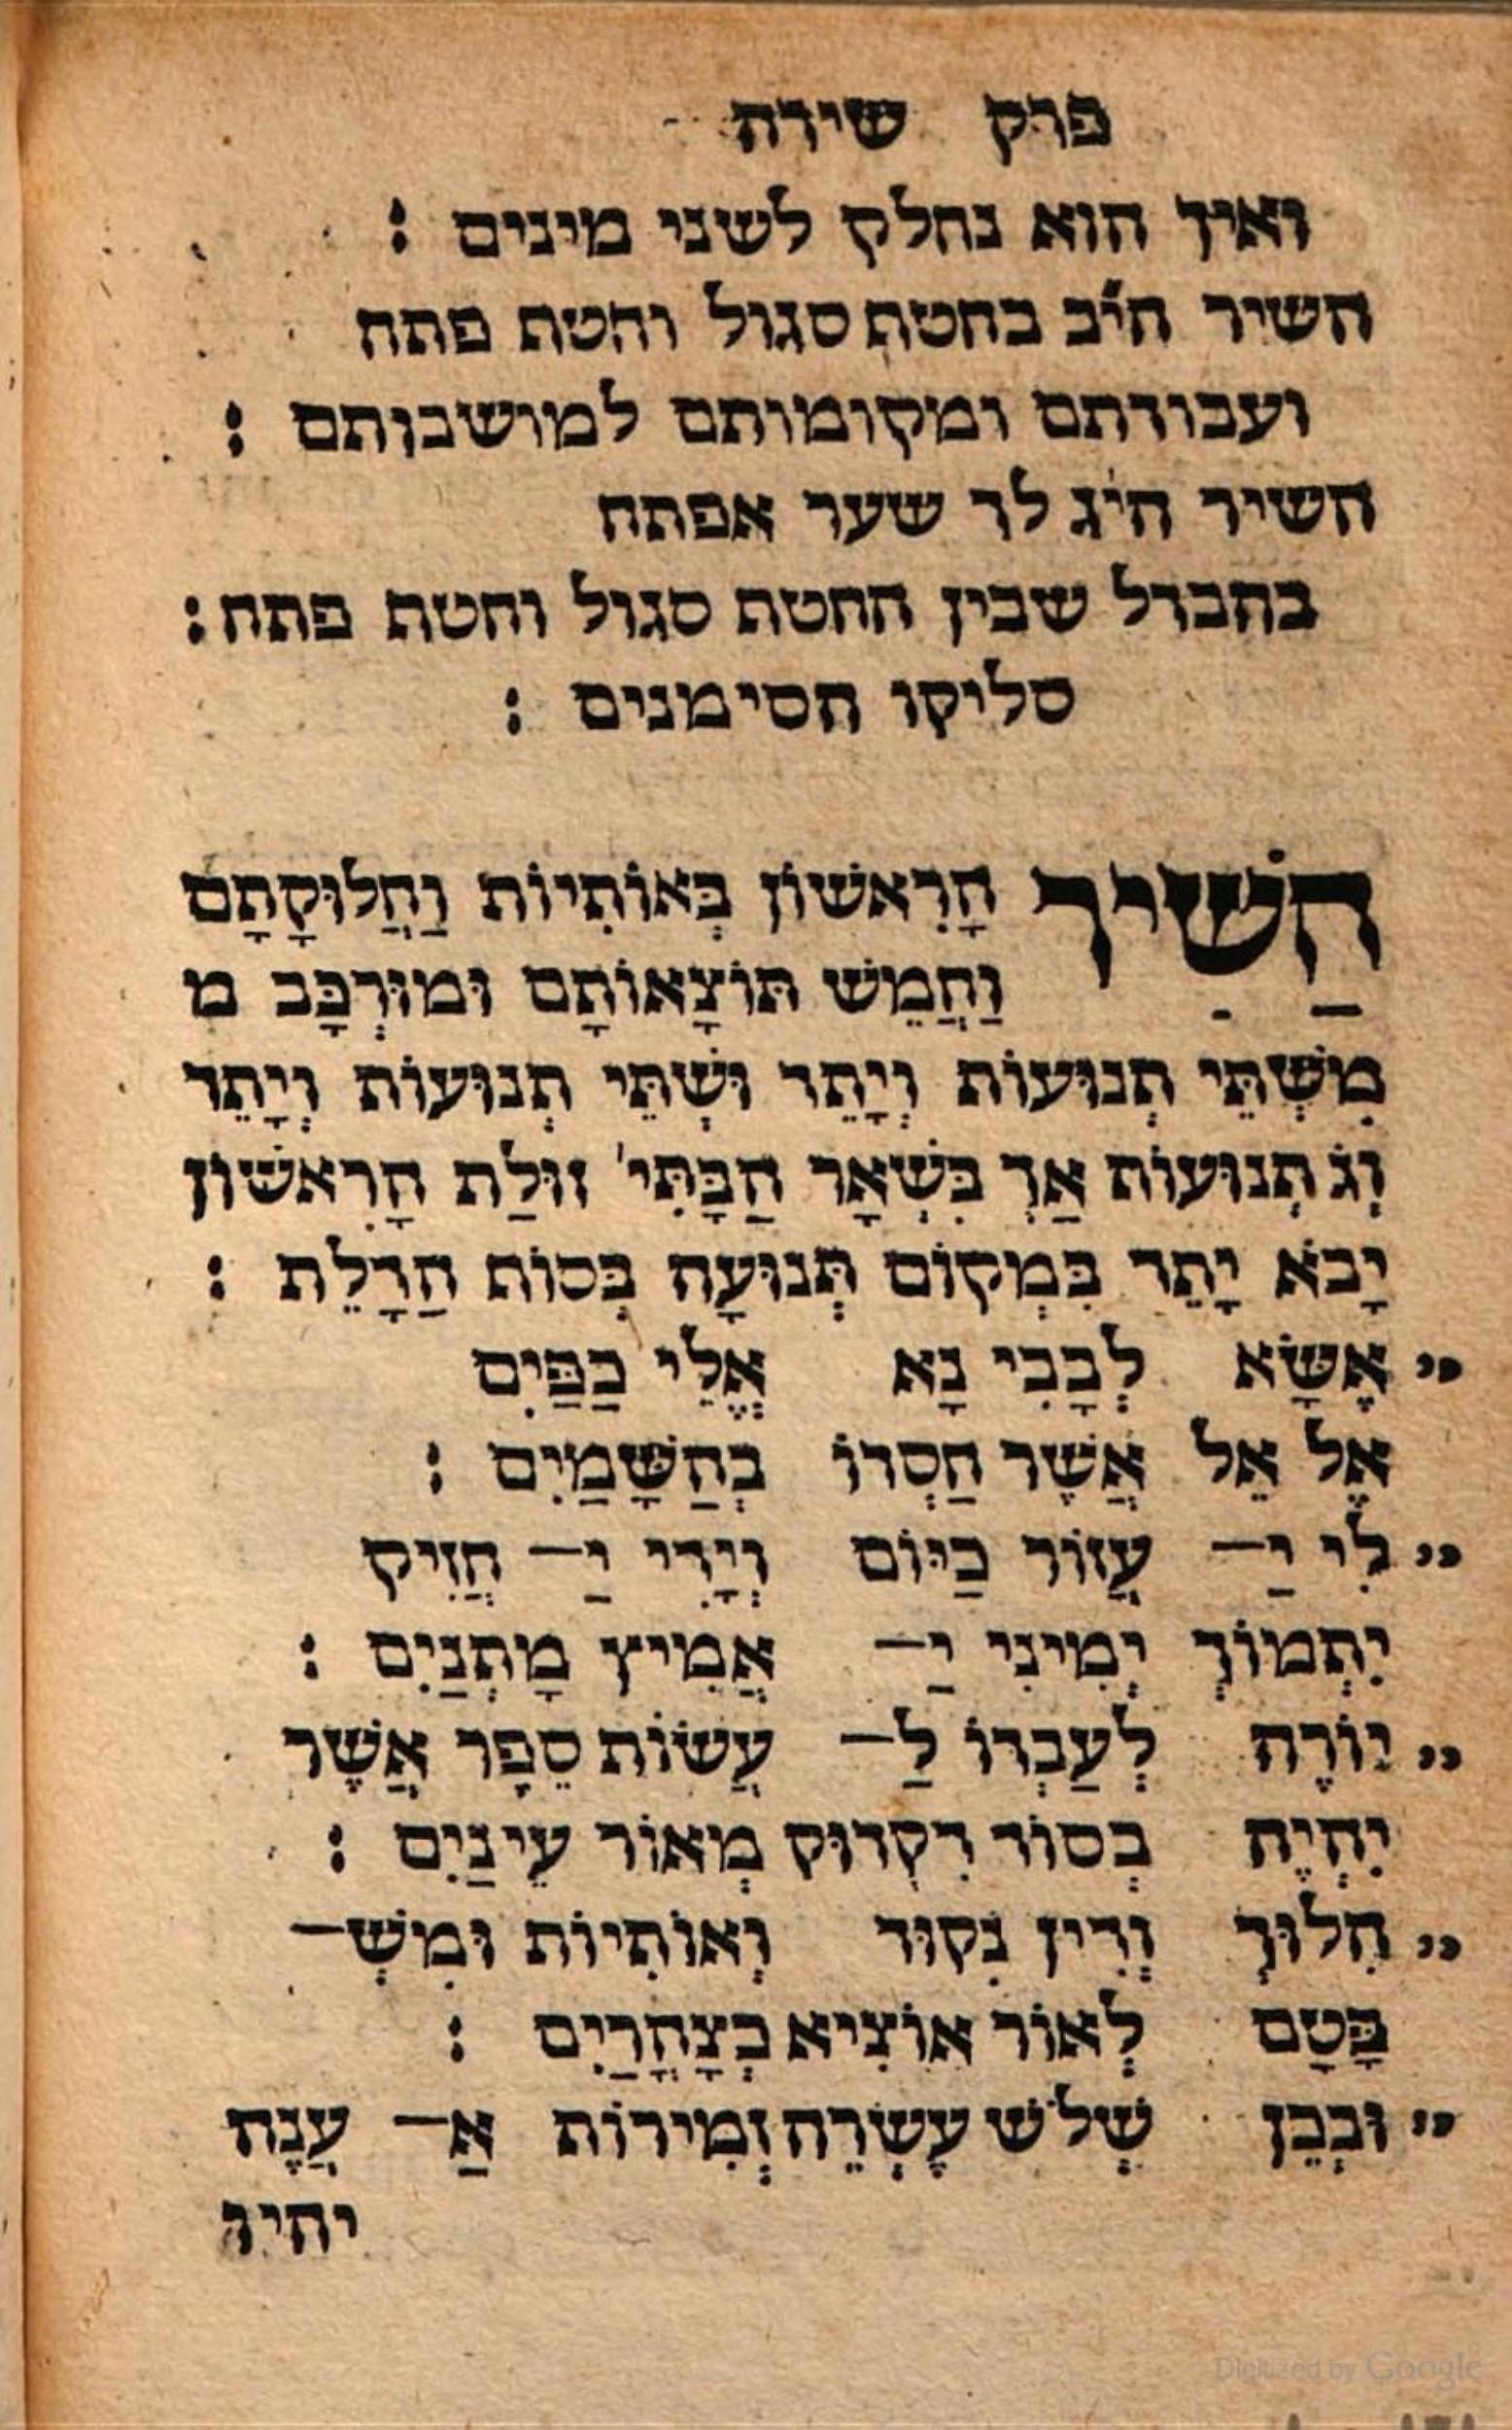 פרק שירה
ואיך הוא נחלק לשני מינים :
השיר הי֗ב בהטת סגול והטת פתח
ועבודתם ומקומותם למושבותם :
השיר הי֗ג לך שער אפתח
בהבדל שבין ההטת סגול והטת פתח :
סליקו הסימנים :
הַשִּׁיר הָרִאשׁוֹן בְּאוֹתִיוֹת וַחֲלוּקָתָם
וַחֲמֵשׁ תּוֹצָאוֹתָם וּמוּרְכָּב מ
מִשְּׁתֵּי תְנוּעוֹת וְיָתֵד וּשְׁתֵּי תְנוּעוֹת וְיָתֵד
וְג֗ תְנוּעוֹת אַךְ בִּשְׁאָר הַבָּתִּי' זוּלַת הָרִאשׁוֹן
יָבֹא יָתֵד בִּמְקוֹם תְּנוּעָה בְּסוֹת הַדָּלֵת :
אֶשָּׂא לְבָבִי נָא אֱלֵי כַפַּיִם
אֶל אֵל אֲשֶׁר חַסְדוֹ בְהַשָּׁמַיִם :
לִי יַ— עֲזוֹר כַּיּוֹם וְיָדִי יַ— חֲזִיק
יִתְמוֹךְ יְמִינִי יַ— אֲמִיץ מָתְנַיִם :
יוֹרֶה לְעַבְדוֹ לַ— עֲשׂוֹת סֵפֶר אֲשֶׁר
יִהְיֶה בְסוֹד דִקְדוּק מְאוֹר עֵינַיִם :
הִלּוּךְ וְדִין נִקוּד וְאוֹתִיוֹת וּמִשְׁ—
בָּטָם לְאוֹר אוֹצִיא כְצָהֳרַיִם :
וּבְכֵן שְׁלֹשׁ עֶשְׂרֵה זְמִירוֹת אַ— עֲנֶה
יהיו
Digitized by Google